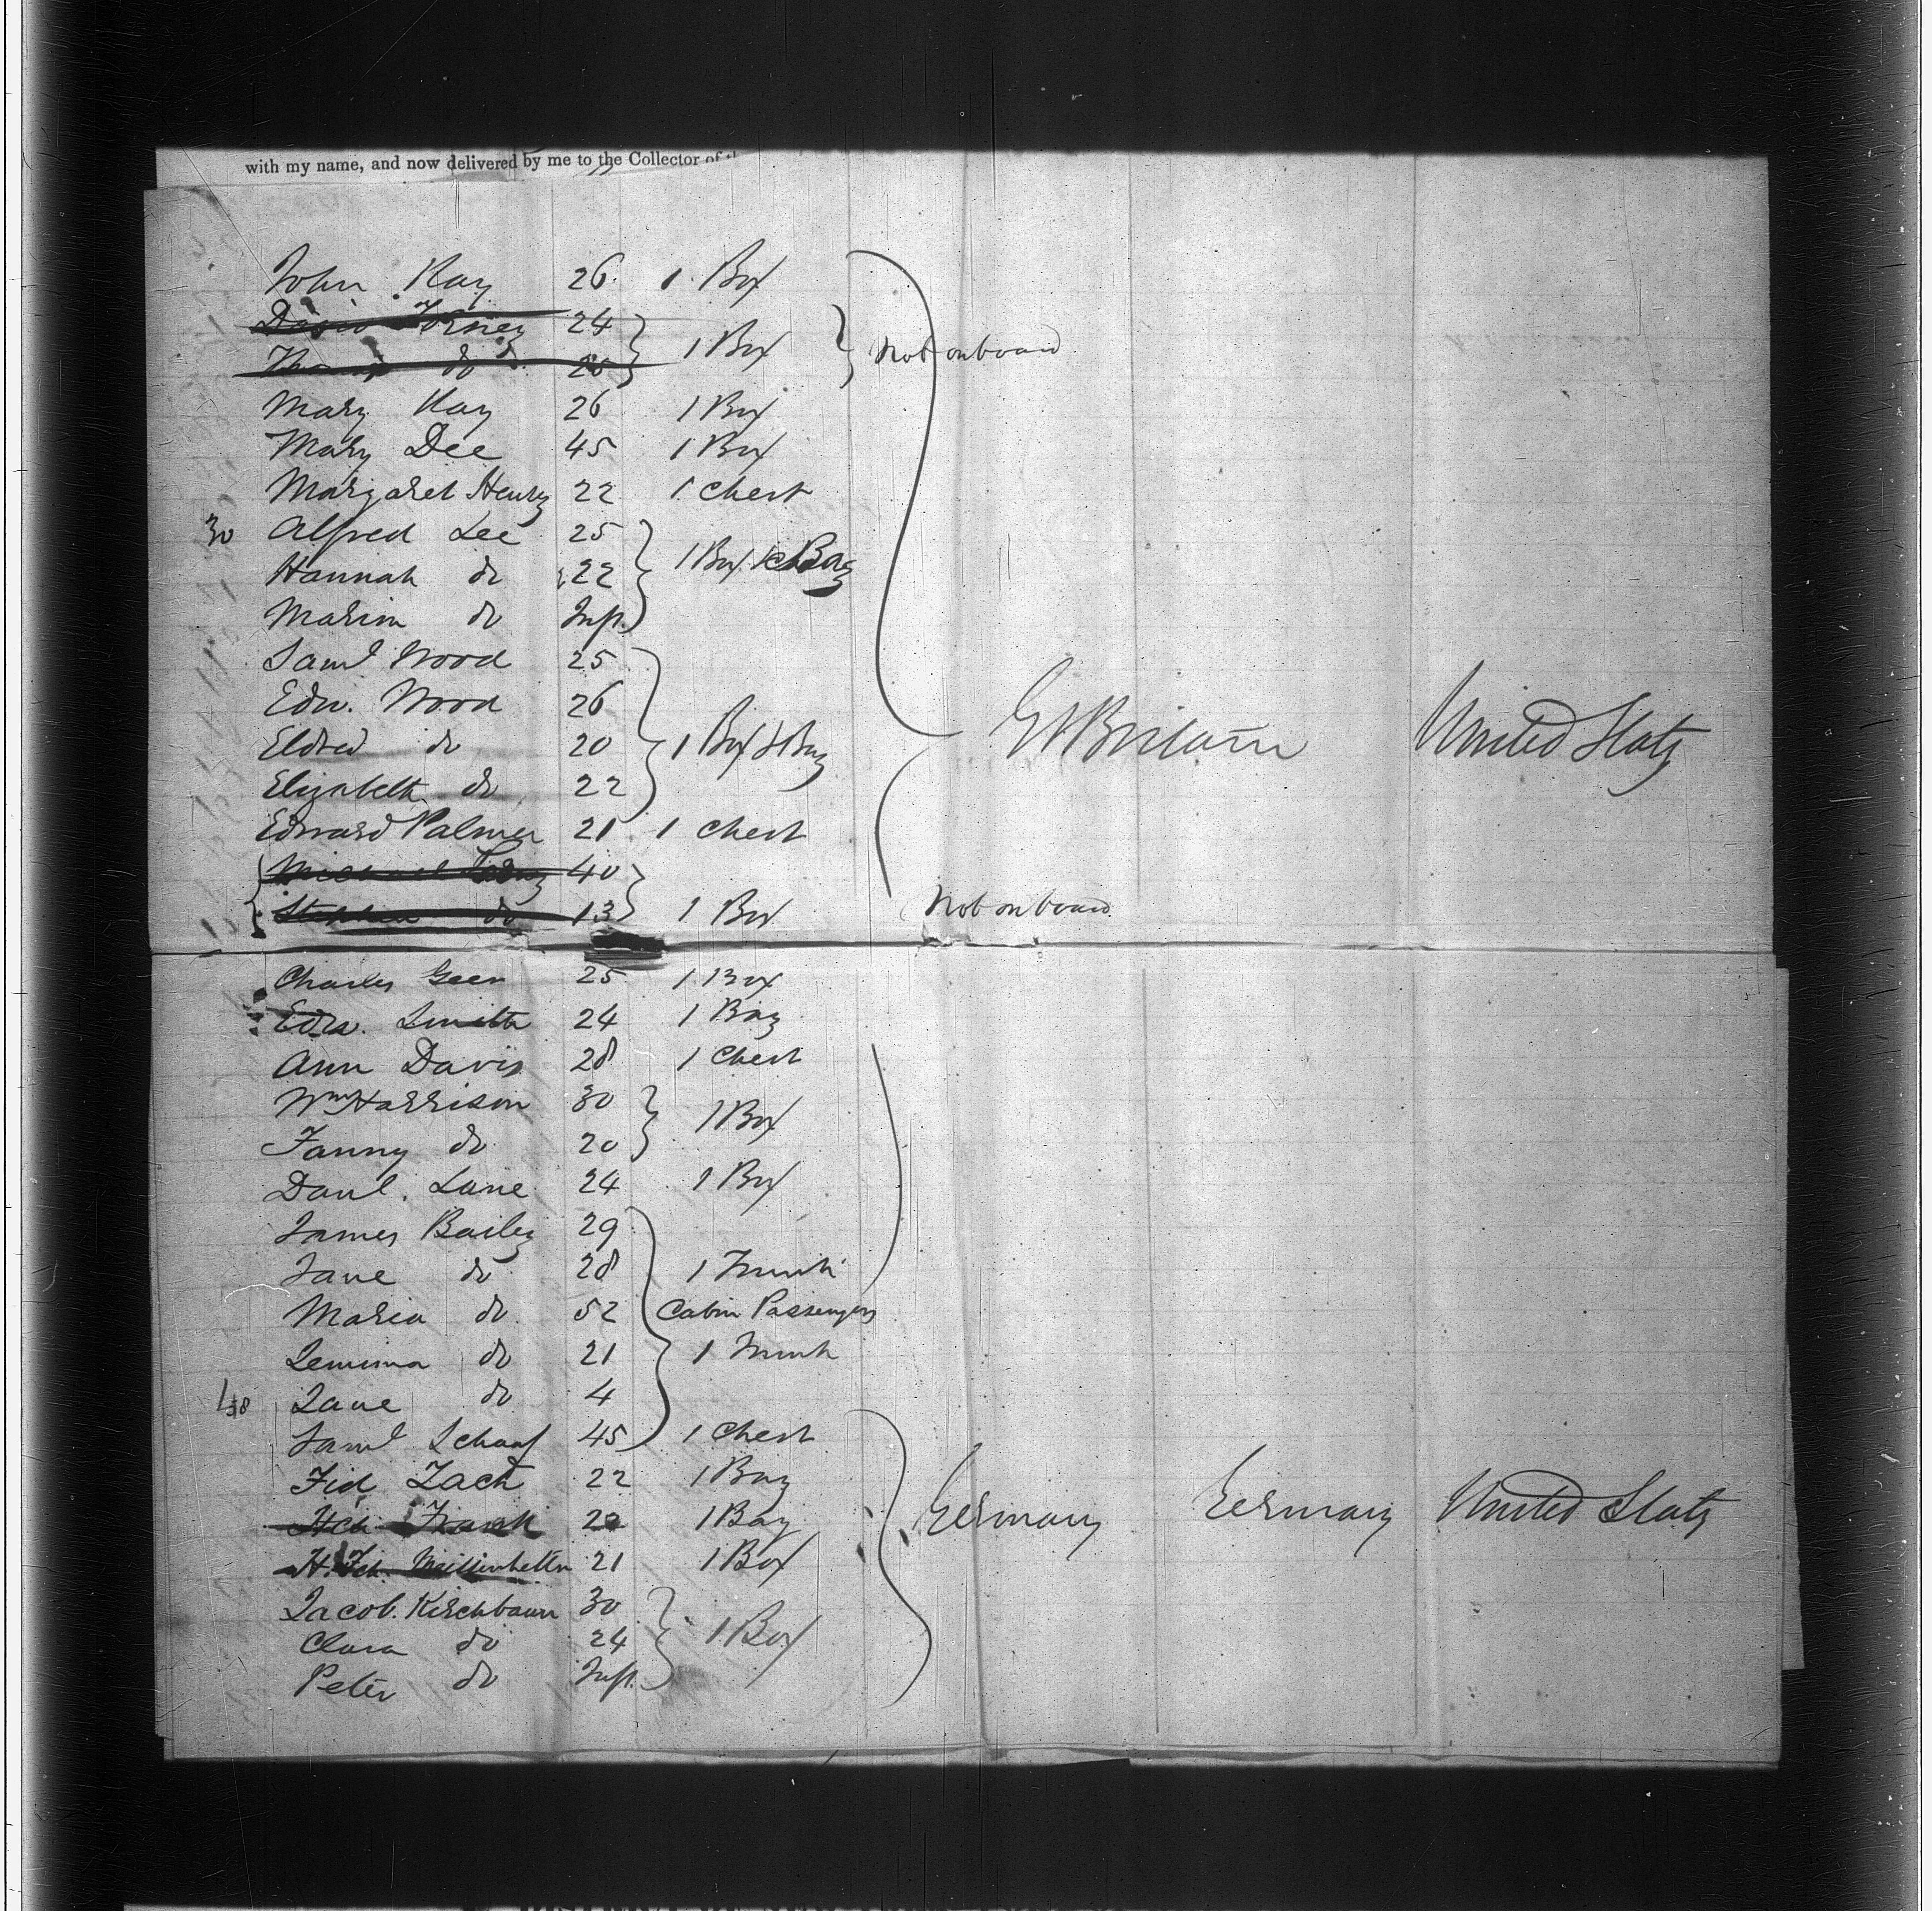 with my name, and now delivered by me to the Collector of
John Kay 26 1 Box
24
do 1 Box Not on board
Mary Kay 26 1 Box
Mary Dee 45 1 Box
Margaret Henry 22 1 Chest
30 Alfred Lee 25
Hannah do 22 1 Box 1 Bag
Marion do Inf.
Saml Wood 25
Edw. Wood 26
Eldred do 20 1 Box & Bag Gt Britain United States
Elizabeth do 22
Edward Palmer 21 1 Chest
Michael 40
Stephen do 13 1 Box Not on board
Charles Geen 25 1 Box
Edw. Smith 24 1 Bag
Ann Davis 28 1 Chest
Wm Harrison 30
1 Box
Fanny do 20
Danl. Lane 24 1 Box
James Bailey 29
Jane do 28 1 Trunk
Maria do 52 Cabin Passengers
Jemima do 21 1 Trunk
Jane do 4
Saml Schaaf 45 1 Chest
Fid Zach 22 1 Bag
Hch Frank 22 1 Bag Germany Germany United States
H. 21 1 Box
Jacob. Kirschbaum 30
Clara do 24 1 Box
Peter do Inf.